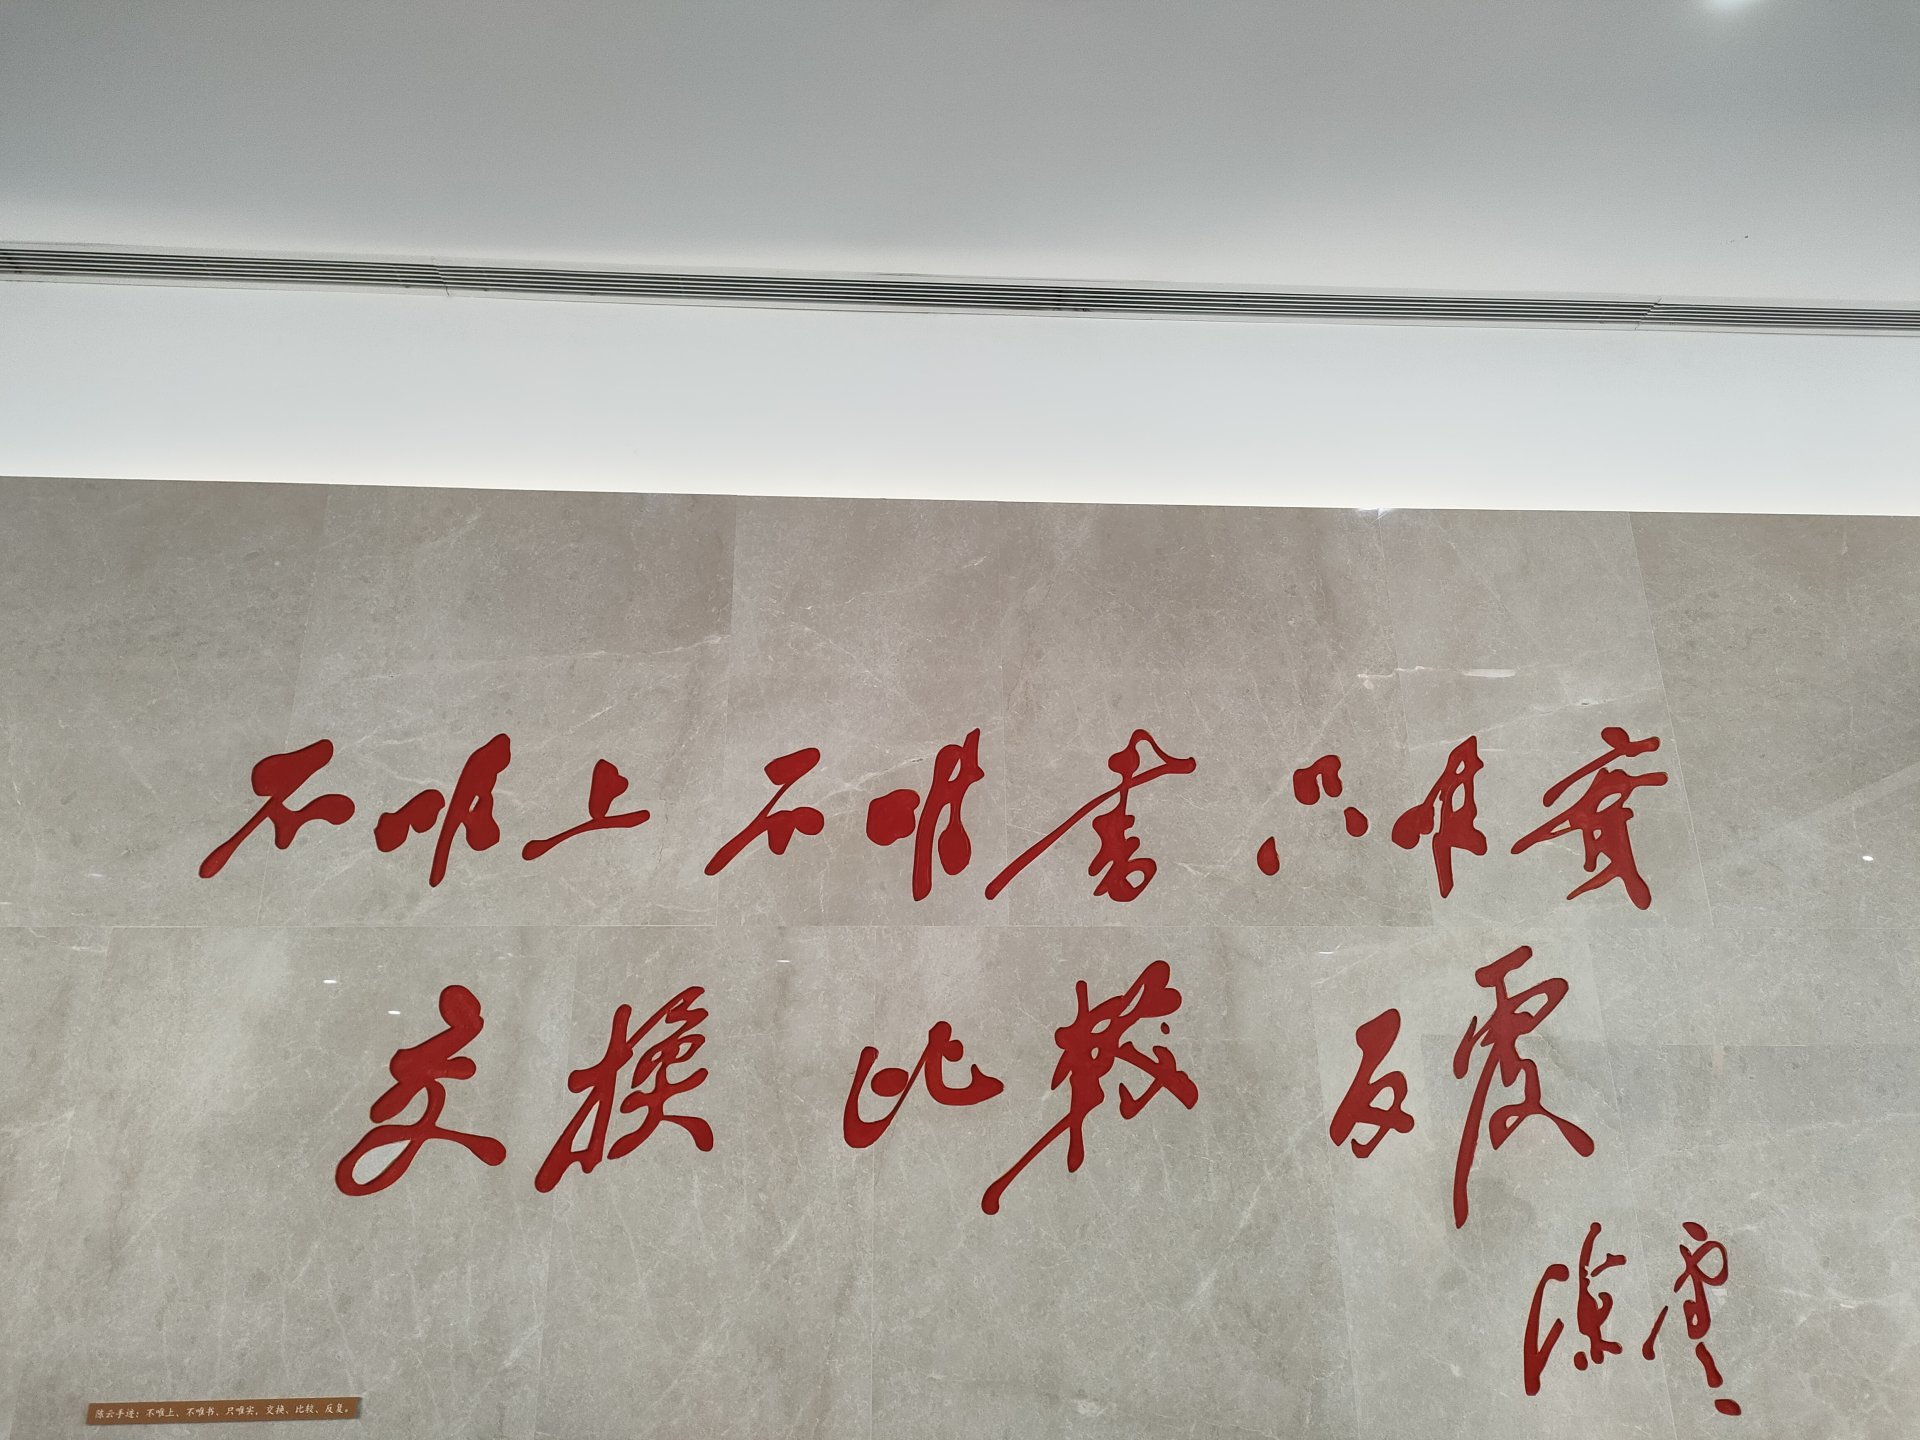 不唯上 不唯書 只唯實
交換 比較 反覆
陳雲
陈云手迹：不唯上、不唯书、只唯实，交换、比较、反复。